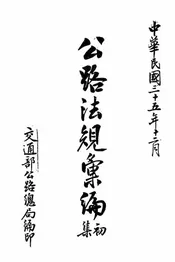 中華民國三十五年十二月
公路法規彙編初集
交通部公路總局編印